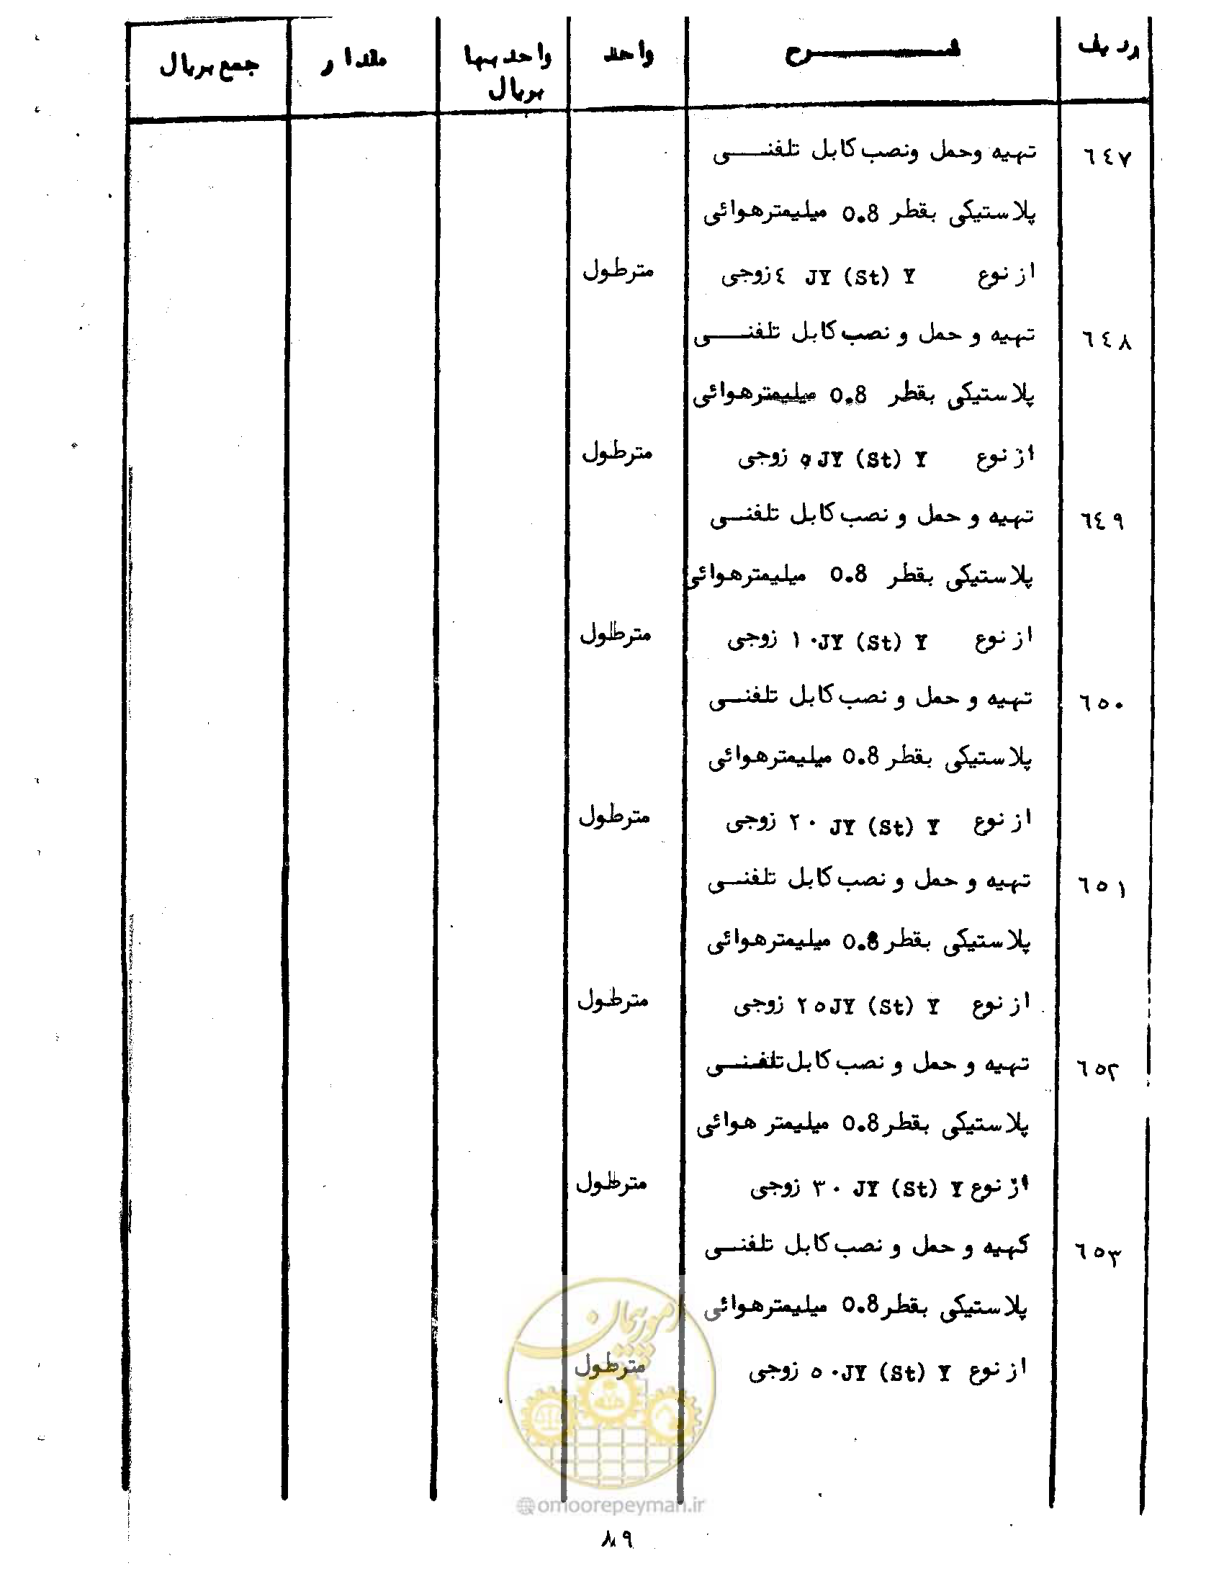 ردیف شرح واحد واحدبها مقدار جمع بریال
بریال
٦٤٧ تهیه وحمل ونصب کابل تلفنی
پلاستیکی بقطر 0.8 میلیمترهوائی
از نوع JY (St) Y ٤ زوجی مترطول
٦٤٨ تهیه و حمل و نصب کابل تلفنی
پلاستیکی بقطر 0.8 میلیمترهوائی
از نوع JY (St) Y ٥ زوجی مترطول
٦٤٩ تهیه و حمل و نصب کابل تلفنی
پلاستیکی بقطر 0.8 میلیمترهوائی
از نوع JY (St) Y ١٠ زوجی مترطول
٦٥٠ تهیه و حمل و نصب کابل تلفنی
پلاستیکی بقطر 0.8 میلیمترهوائی
از نوع JY (St) Y ٢٠ زوجی مترطول
٦٥١ تهیه و حمل و نصب کابل تلفنی
پلاستیکی بقطر 0.8 میلیمترهوائی
از نوع JY (St) Y ٢٥ زوجی مترطول
٦٥٢ تهیه و حمل و نصب کابل تلفنی
پلاستیکی بقطر 0.8 میلیمتر هوائی
از نوع JY (St) Y ٣٠ زوجی مترطول
٦٥٣ کهیه و حمل و نصب کابل تلفنی
پلاستیکی بقطر 0.8 میلیمترهوائی
از نوع JY (St) Y ٥٠ زوجی مترطول
امور پیمان
@omoorepeyman.ir
٨٩